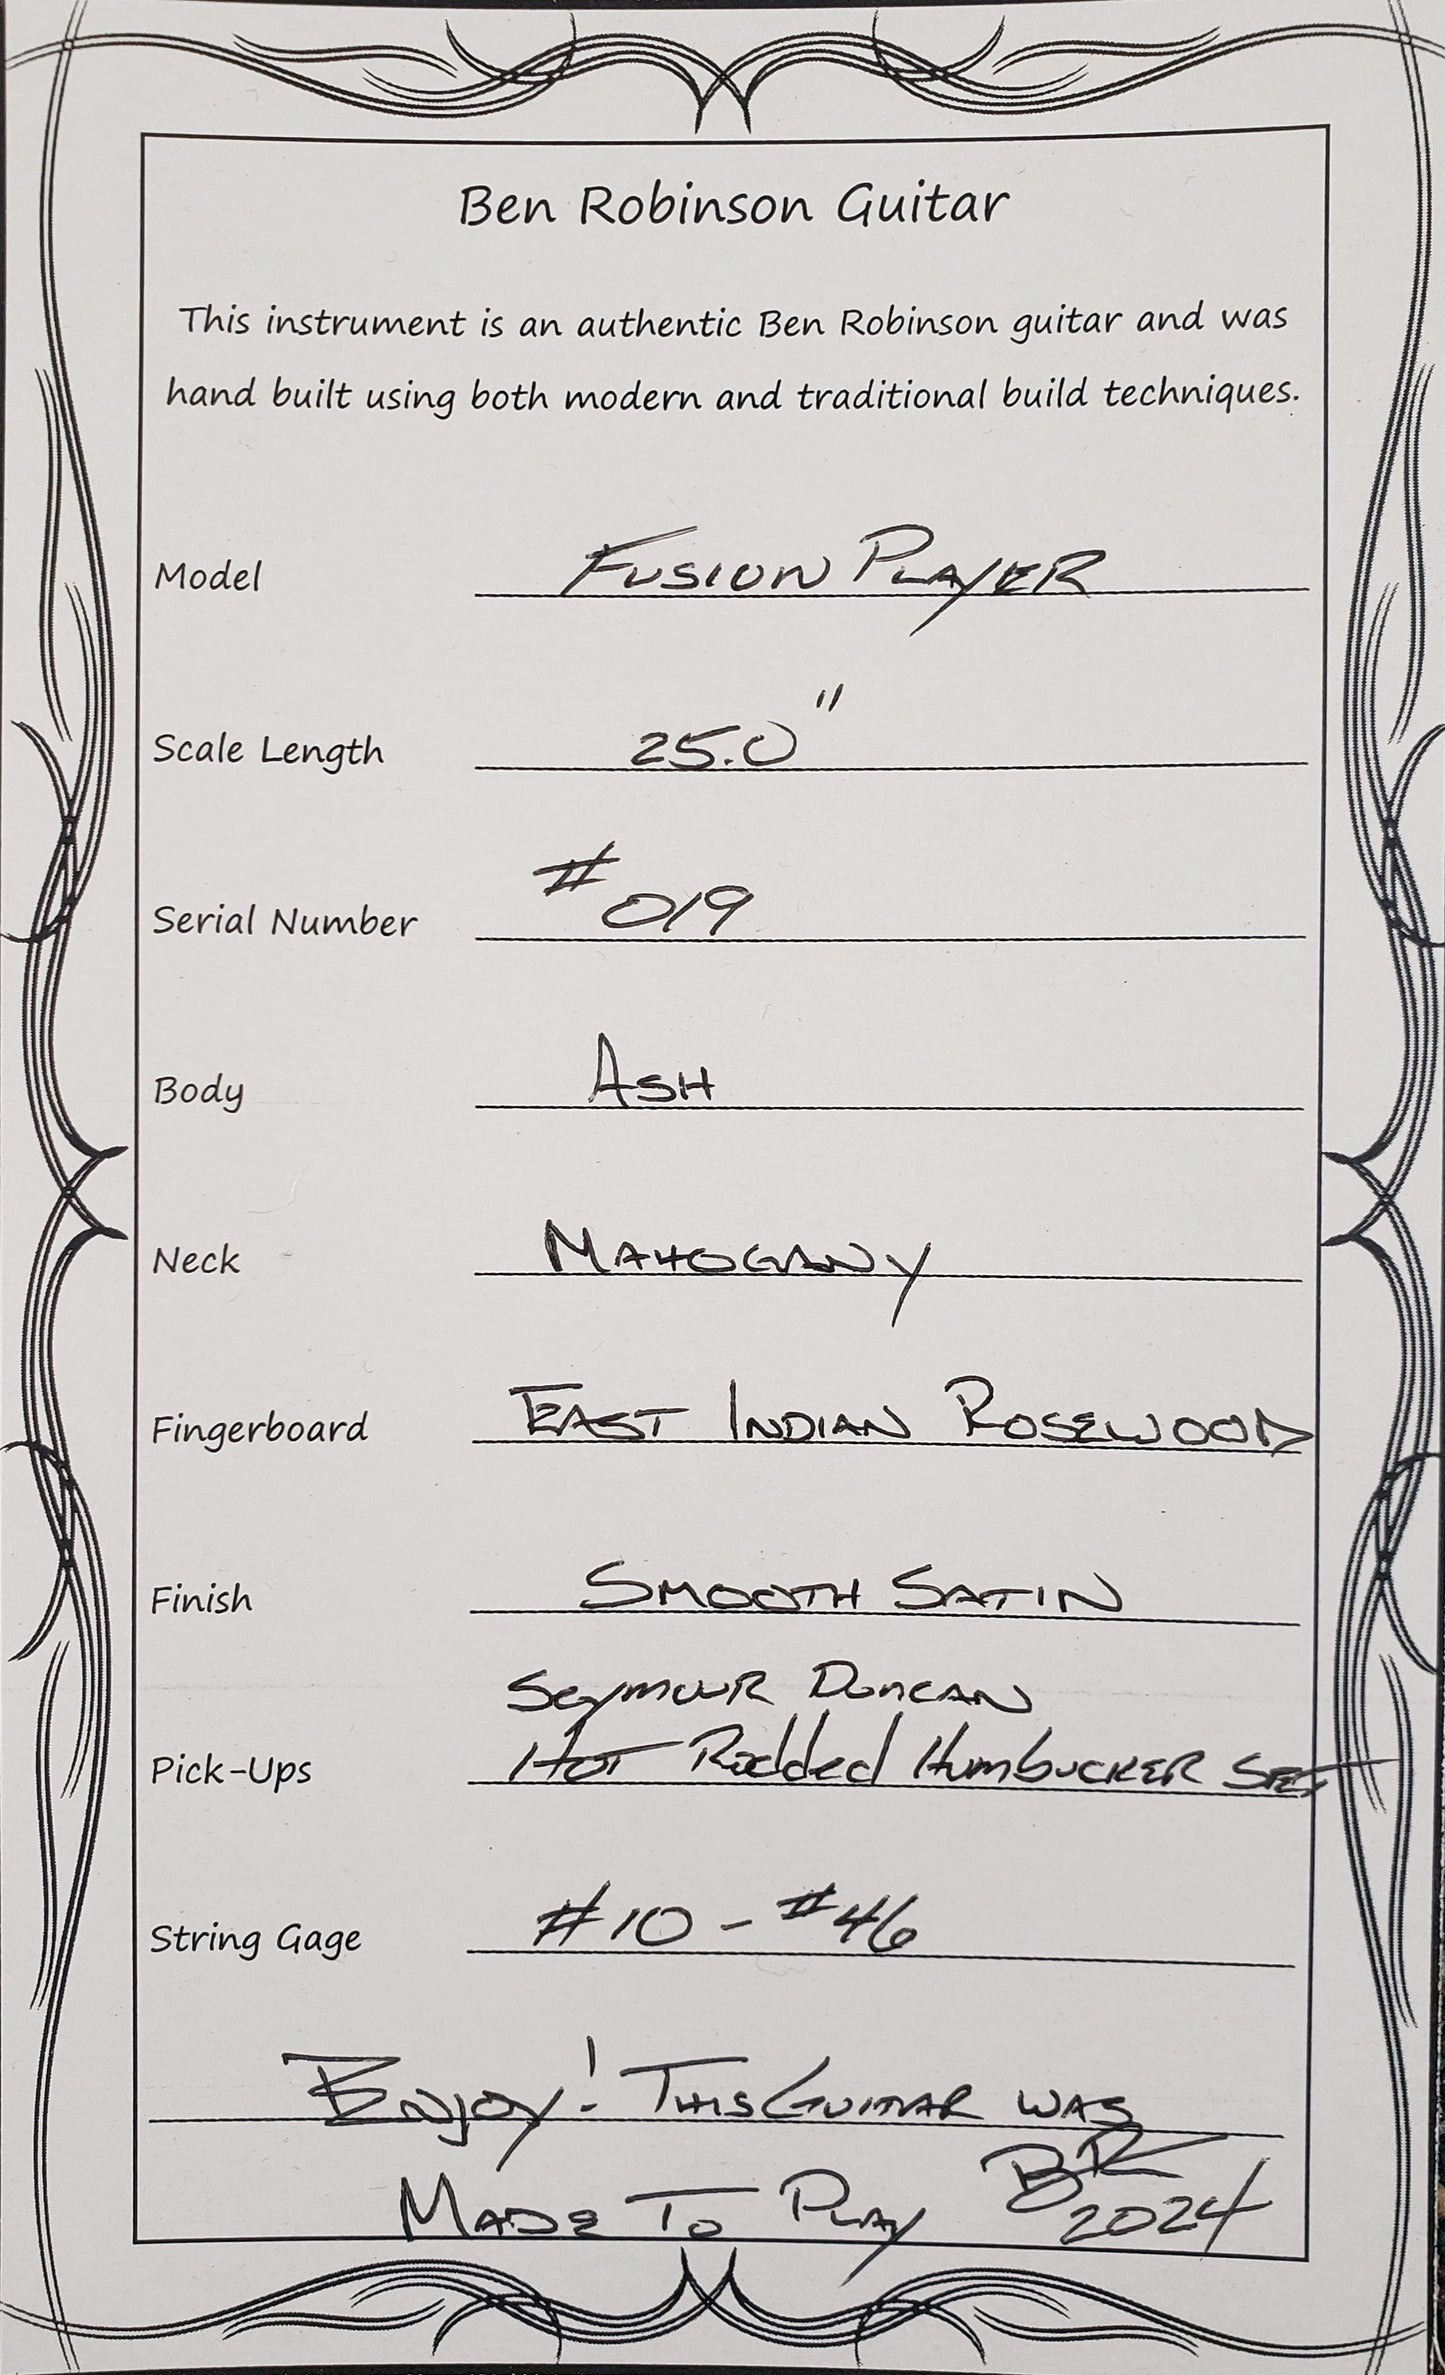 Ben Robinson Guitar
This instrument is an authentic Ben Robinson guitar and was
hand built using both modern and traditional build techniques.
Model FUSION PLAYER
Scale Length 25.0"
Serial Number #019
Body ASH
Neck MAHOGANY
Fingerboard EAST INDIAN ROSEWOOD
Finish SMOOTH SATIN
SEYMOUR DUNCAN
Pick-Ups HOT Rodded HumbuCKER SET
String Gage #10 - #46
ENJOY! THIS GUITAR WAS
MADE TO PLAY BR
2024